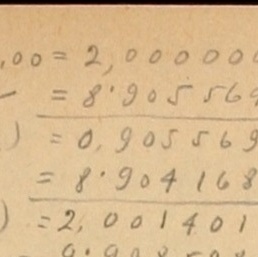 ,00 = 2,000000
– = 8·905569
) = 0,905569
= 8·904168
) = 2,001401